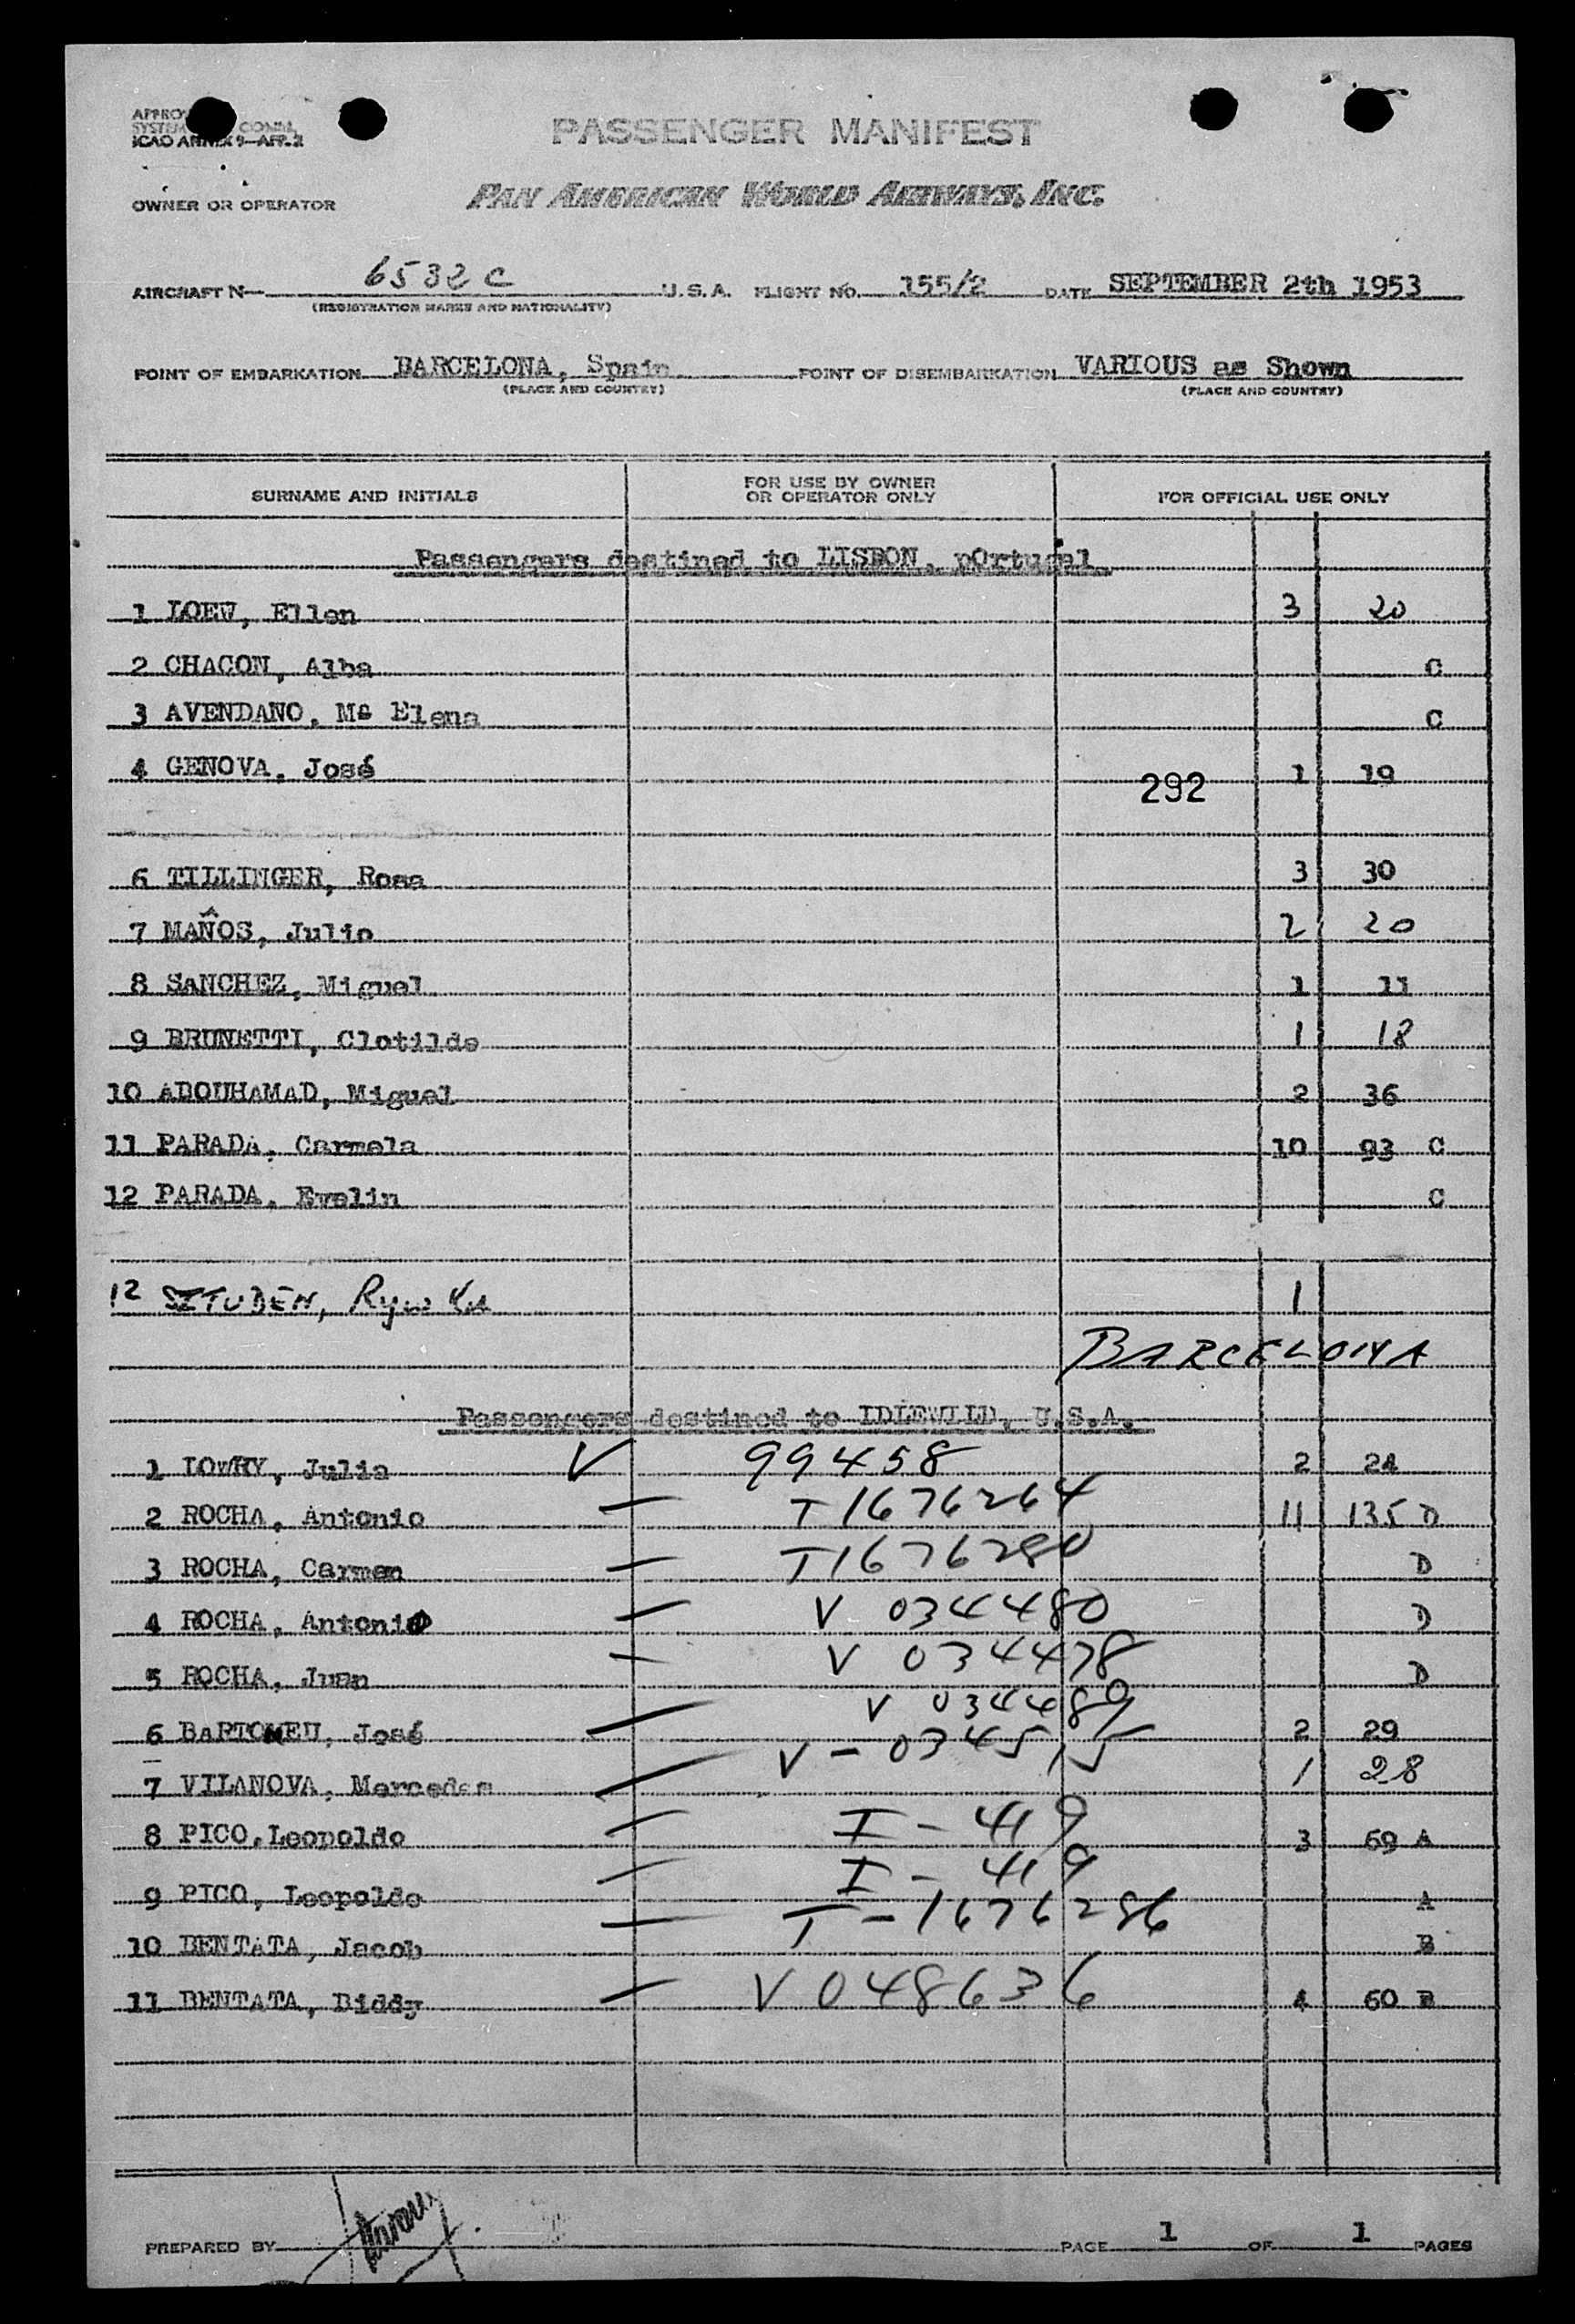 ICAO ANNEX 9—APP. 2
PASSENGER MANIFEST
OWNER OR OPERATOR PAN AMERICAN WORLD AIRWAYS, INC.
AIRCRAFT N— 6532C U.S.A. FLIGHT NO. 155/2 DATE SEPTEMBER 2th 1953
(REGISTRATION MARKS AND NATIONALITY)
POINT OF EMBARKATION BARCELONA, Spain POINT OF DISEMBARKATION VARIOUS as Shown
(PLACE AND COUNTRY) (PLACE AND COUNTRY)
SURNAME AND INITIALS FOR USE BY OWNER OR OPERATOR ONLY FOR OFFICIAL USE ONLY
Passengers destined to LISBON, pOrtugal
1 LOEW, Ellen 3 20
2 CHACON, Alba C
3 AVENDANO, Mª Elena C
4 GENOVA, José 1 19
292
6 TILLINGER, Rosa 3 30
7 MAÑOS, Julio 2 20
8 SANCHEZ, Miguel 1 11
9 BRUNETTI, Clotilde 1 18
10 ABOUHAMAD, Miguel 2 36
11 PARADA, Carmela 10 93 C
12 PARADA, Evelin C
12 SZTUDEN, Rywka 1
BARCELONA
Passengers destined to IDLEWILD, U.S.A.
1 LOWRY, Julia V 99458 2 24
2 ROCHA, Antonio — T1676264 11 135 D
3 ROCHA, Carmen — T1676280 D
4 ROCHA, Antonio — V 034480 D
5 ROCHA, Juan — V 034478 D
6 BARTOMEU, José — V 034489 2 29
7 VILANOVA, Mercedes — V - 034515 1 28
8 PICO, Leopoldo — I - 419 3 69 A
9 PICO, Leopoldo — I - 419 A
10 BENTATA, Jacob — T - 1676286 B
11 BENTATA, Biddy — V 048636 4 60 B
PREPARED BY PAGE 1 OF 1 PAGES